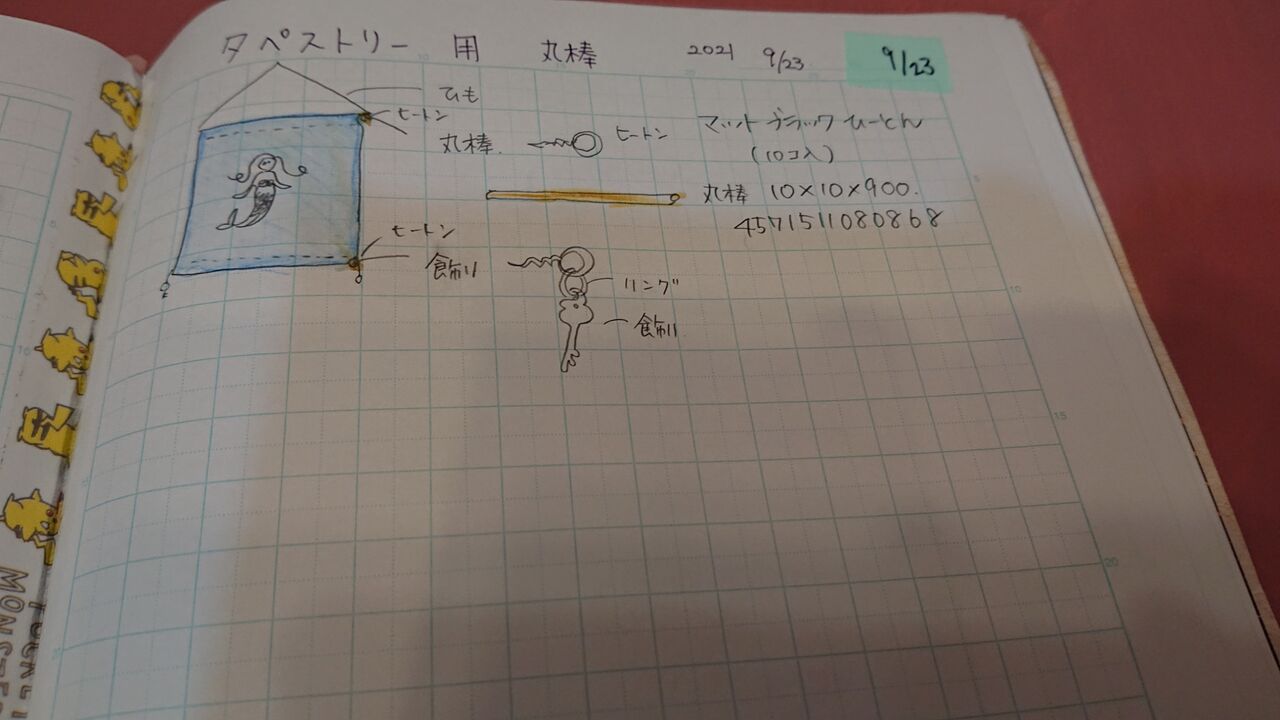 タペストリー 用 丸棒 2021 9/23 9/23
ひも
ヒートン
丸棒 ヒートン マットブラックひーとん
(10コ入)
丸棒 10×10×900.
4571511080868
ヒートン
飾り
リング
飾り
10
5
10
15
20
10
5
POCKET
MONSTER